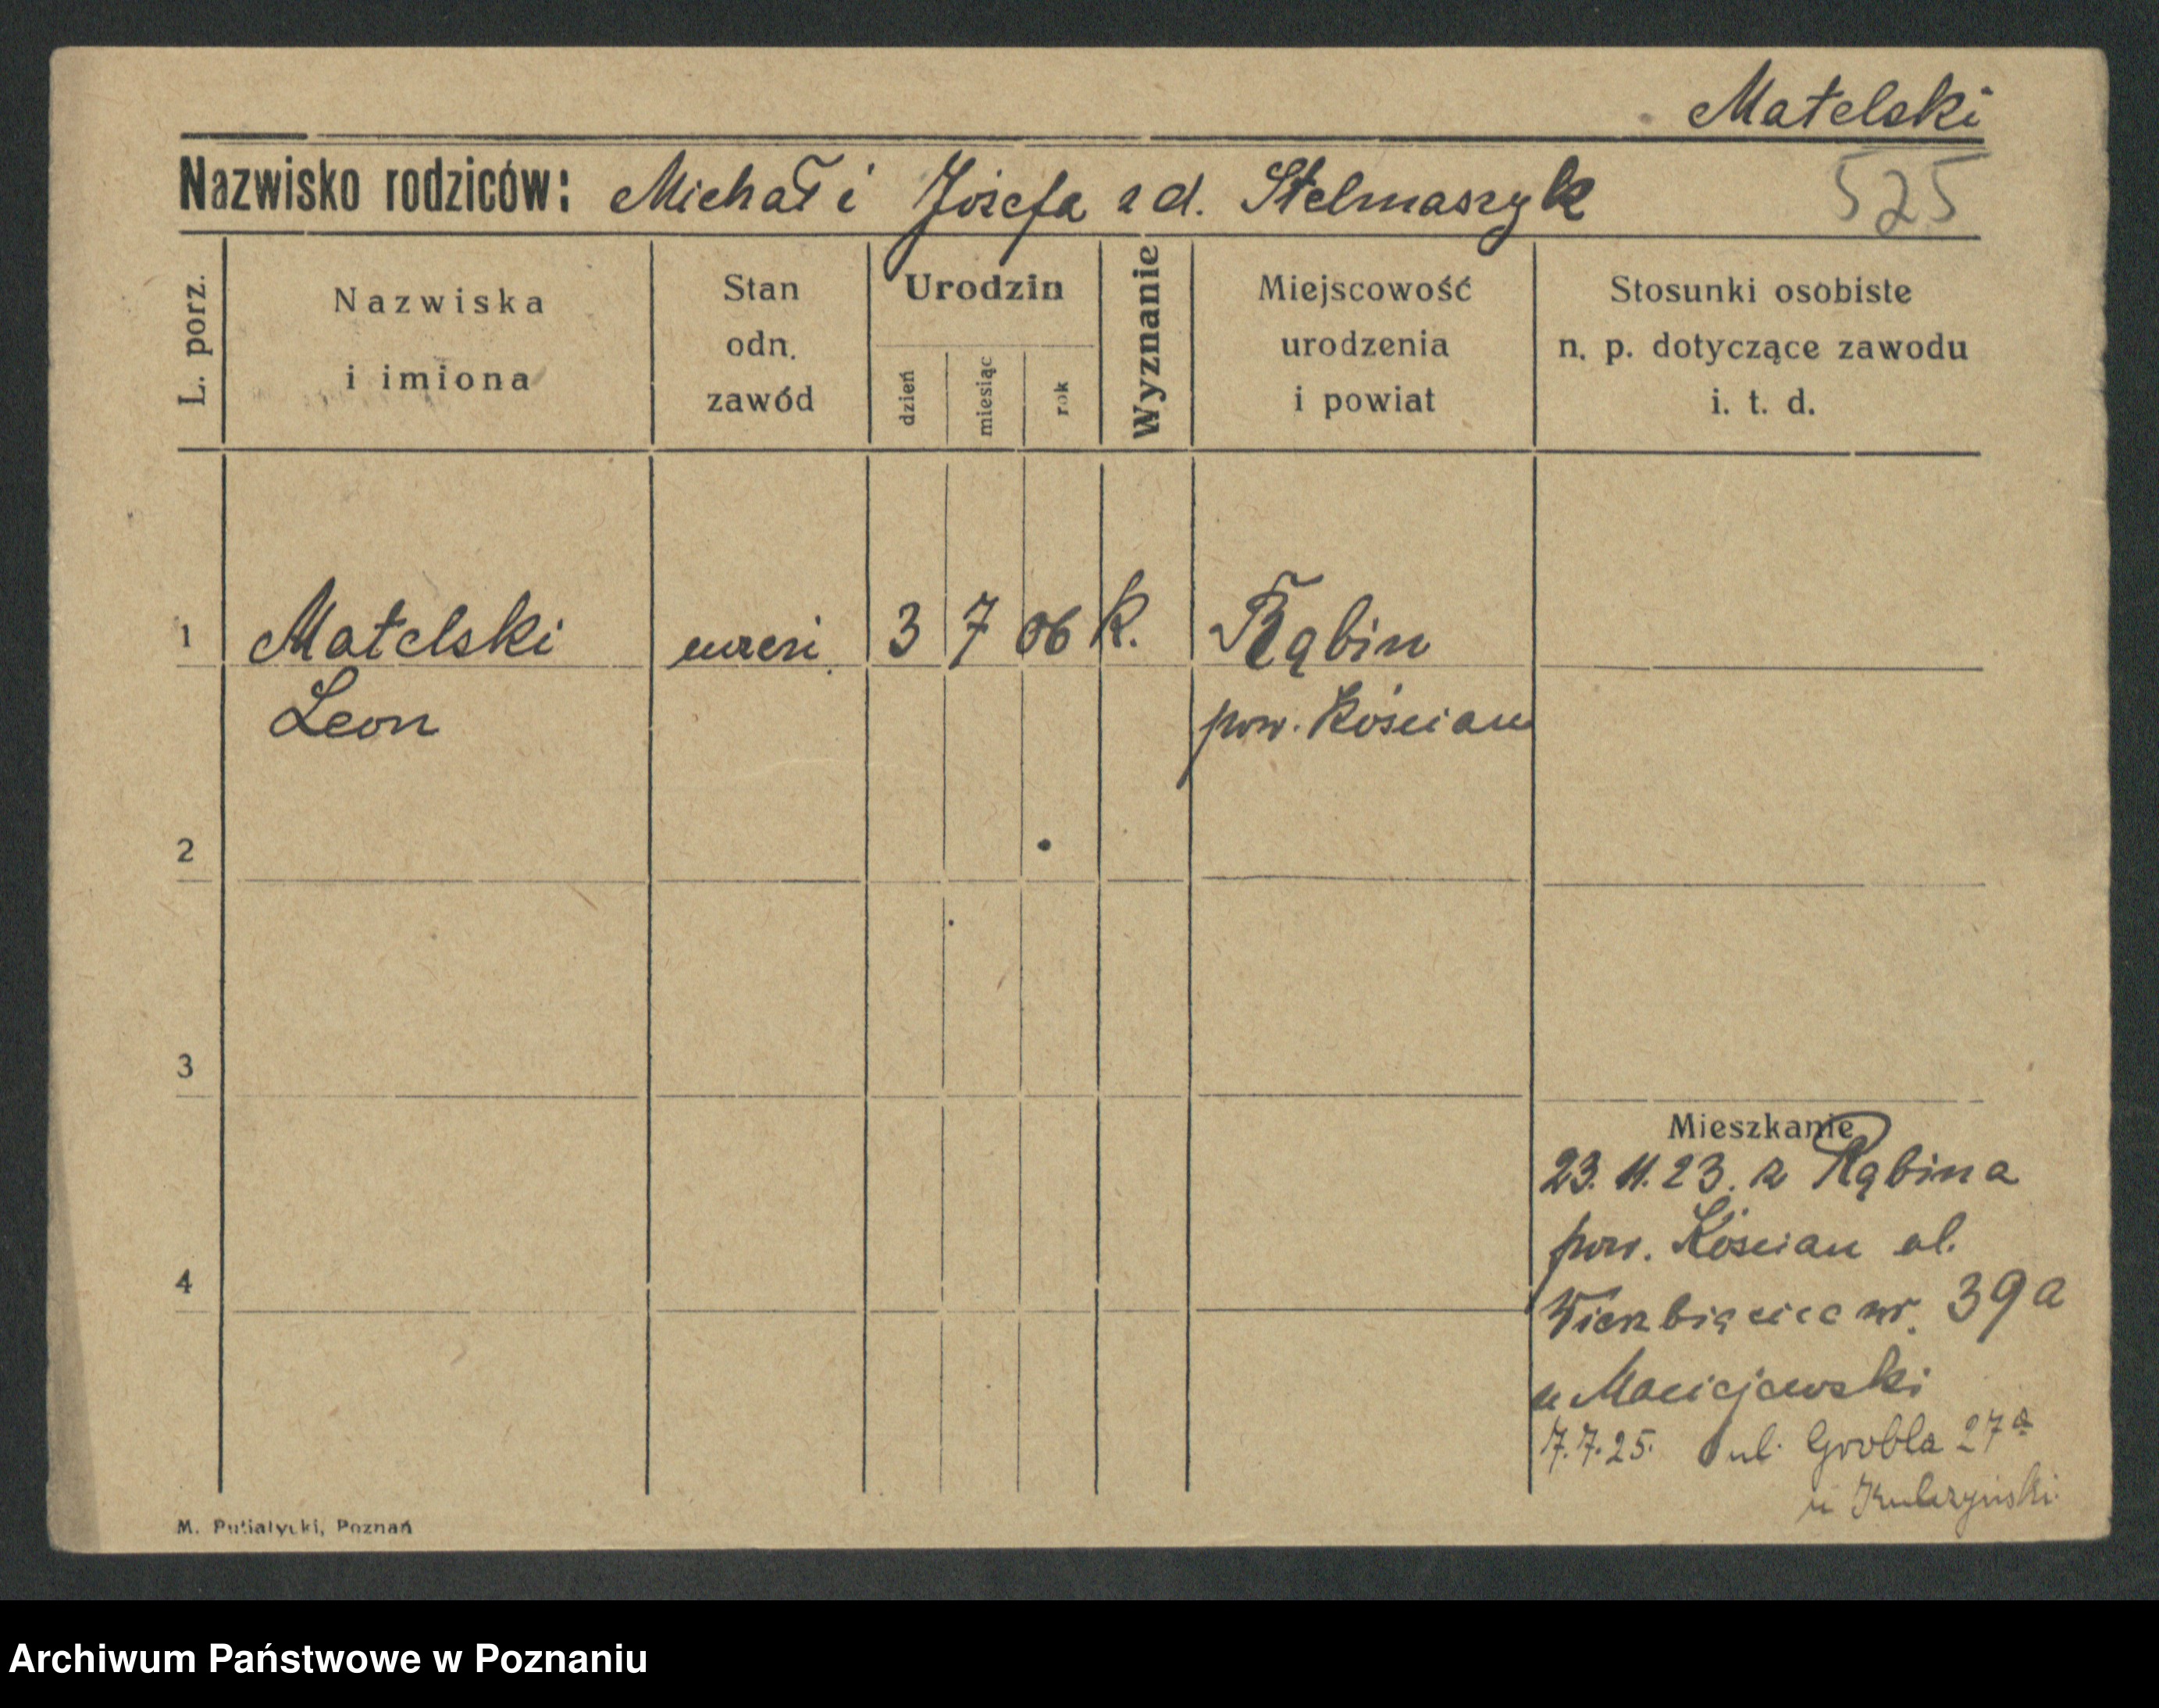 Matelski
Nazwisko rodziców: Michał i Józefa z d. Stelmaszyk 525
L. porz.
Nazwiska
i imiona
Stan
odn.
zawód
Urodzin
dzień
miesiąc
rok
Wyznanie
Miejscowość
urodzenia
i powiat
Stosunki osobiste
n. p. dotyczące zawodu
i. t. d.
1 Matelski uczeń 3 7 06 k. Rąbin
Leon pow. Kościan
2
3
Mieszkanie
23. 11. 23. z Rąbina
pow. Kościan ul.
4
Wierzbięcice nr. 39a
u Maciejewski
7.7.25. ul. Grobla 27a
u
M. Putiatycki, Poznań
Archiwum Państwowe w Poznaniu